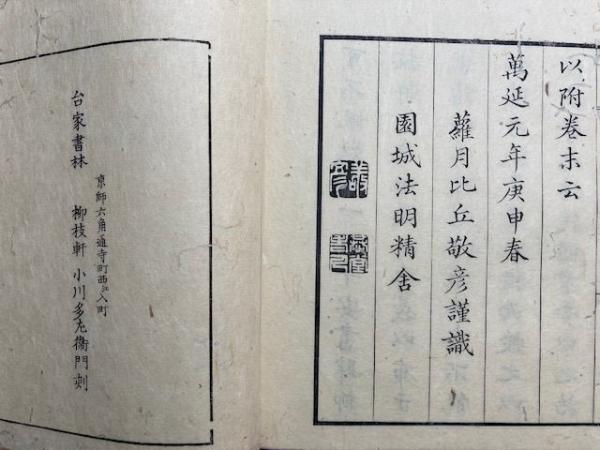 以附卷末云
萬延元年庚申春
蘿月比丘敬彦謹識
園城法明精舍
台家書林
京師六角通寺町西江入町
柳枝軒 小川多左衞門刻